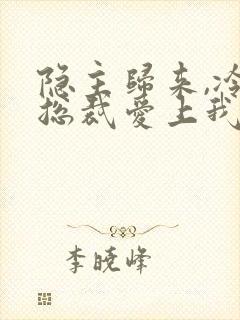 隐主歸来,冷
总裁爱上我
李晓峰